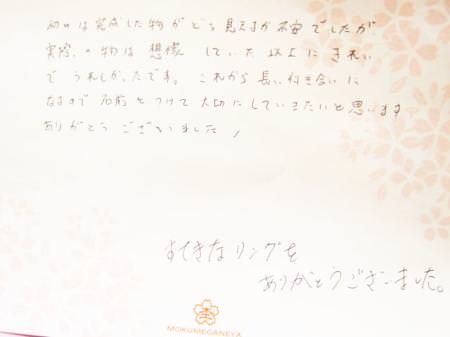 初めは完成した物がどう見えるか不安でしたが
実際の物は想像していた以上にきれい
でうれしかったです。これから長い付き合いに
なるので名前をつけて大切にしていきたいと思います
ありがとうございました!
すてきなリングを
ありがとうございました。
MOKUMEGANEYA